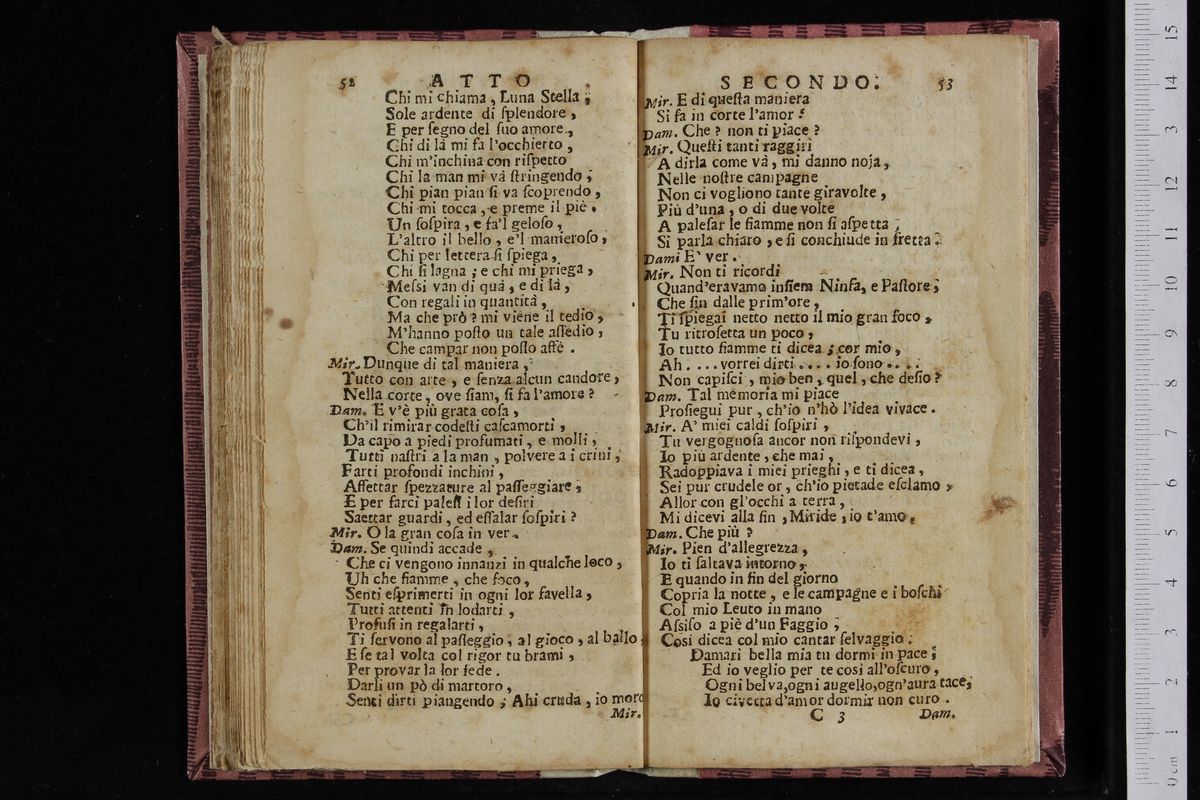 52 ATTO
Chi mi chiama, Luna Stella;
Sole ardente di ſplendore,
E per ſegno del ſuo amore,
Chi di là mi fa l'occhietto,
Chi m'inchina con riſpetto
Chi la man mi và ſtringendo;
Chi pian pian ſi va ſcoprendo,
Chi mi tocca, e preme il piè.
Un ſoſpira, e fa'l geloſo,
L'altro il bello, e'l manieroſo,
Chi per lettera ſi ſpiega,
Chi ſi lagna; e chi mi priega,
Meſsi van di quà, e di là,
Con regali in quantità,
Ma che prò? mi viene il tedio,
M'hanno poſto un tale aſſedio,
Che campar non poſſo affè.
Mir. Dunque di tal maniera,
Tutto con arte, e ſenza alcun candore,
Nella corte, ove ſiam, ſi fa l'amore?
Dam. E v'è più grata coſa,
Ch'il rimirar codeſti caſcamorti,
Da capo a piedi profumati, e molli,
Tutti naſtri a la man, polvere a i crini,
Farti profondi inchini,
Affettar ſpezzature al paſſeggiare;
E per farci paleſi i lor deſiri
Saettar guardi, ed eſſalar ſoſpiri?
Mir. O la gran coſa in ver.
Dam. Se quindi accade,
Che ci vengono innanzi in qualche loco,
Uh che fiamme, che foco,
Senti eſprimerti in ogni lor favella,
Tutti attenti in lodarti,
Profuſi in regalarti,
Ti ſervono al paſſeggio, al gioco, al ballo,
E ſe tal volta col rigor tu brami,
Per provar la lor fede.
Darli un pò di martoro,
Senti dirti piangendo; Ahi cruda, io moro
Mir.
SECONDO. 53
Mir. E di queſta maniera
Si fa in corte l'amor?
Dam. Che? non ti piace?
Mir. Queſti tanti raggiri
A dirla come và, mi danno noja,
Nelle noſtre campagne
Non ci vogliono tante giravolte,
Più d'una, o di due volte
A paleſar le fiamme non ſi aſpetta;
Si parla chiaro, e ſi conchiude in fretta.
Dami E' ver.
Mir. Non ti ricordi
Quand'eravamo inſiem Ninfa, e Paſtore;
Che ſin dalle prim'ore,
Ti ſpiegai netto netto il mio gran foco,
Tu ritroſetta un poco,
Io tutto fiamme ti dicea; cor mio,
Ah.... vorrei dirti.... io ſono....
Non capiſci, mio ben, quel, che deſio?
Dam. Tal memoria mi piace
Proſiegui pur, ch'io n'hò l'idea vivace.
Mir. A' miei caldi ſoſpiri,
Tu vergognoſa ancor non riſpondevi,
Io più ardente, che mai,
Radoppiava i miei prieghi, e ti dicea,
Sei pur crudele or, ch'io pietade eſclamo,
Allor con gl'occhi a terra,
Mi dicevi alla fin, Miride, io t'amo.
Dam. Che più?
Mir. Pien d'allegrezza,
Io ti ſaltava intorno,
E quando in fin del giorno
Copria la notte, e le campagne e i boſchi
Col mio Leuto in mano
Aſsiſo a piè d'un Faggio,
Cosi dicea col mio cantar ſelvaggio.
Damari bella mia tu dormi in pace;
Ed io veglio per te cosi all'oſcuro,
Ogni belva, ogni augello, ogn'aura tace,
Io civetta d'amor dormir non curo.
C 3 Dam.
0 cm 1 2 3 4 5 6 7 8 9 10 11 12 13 14 15